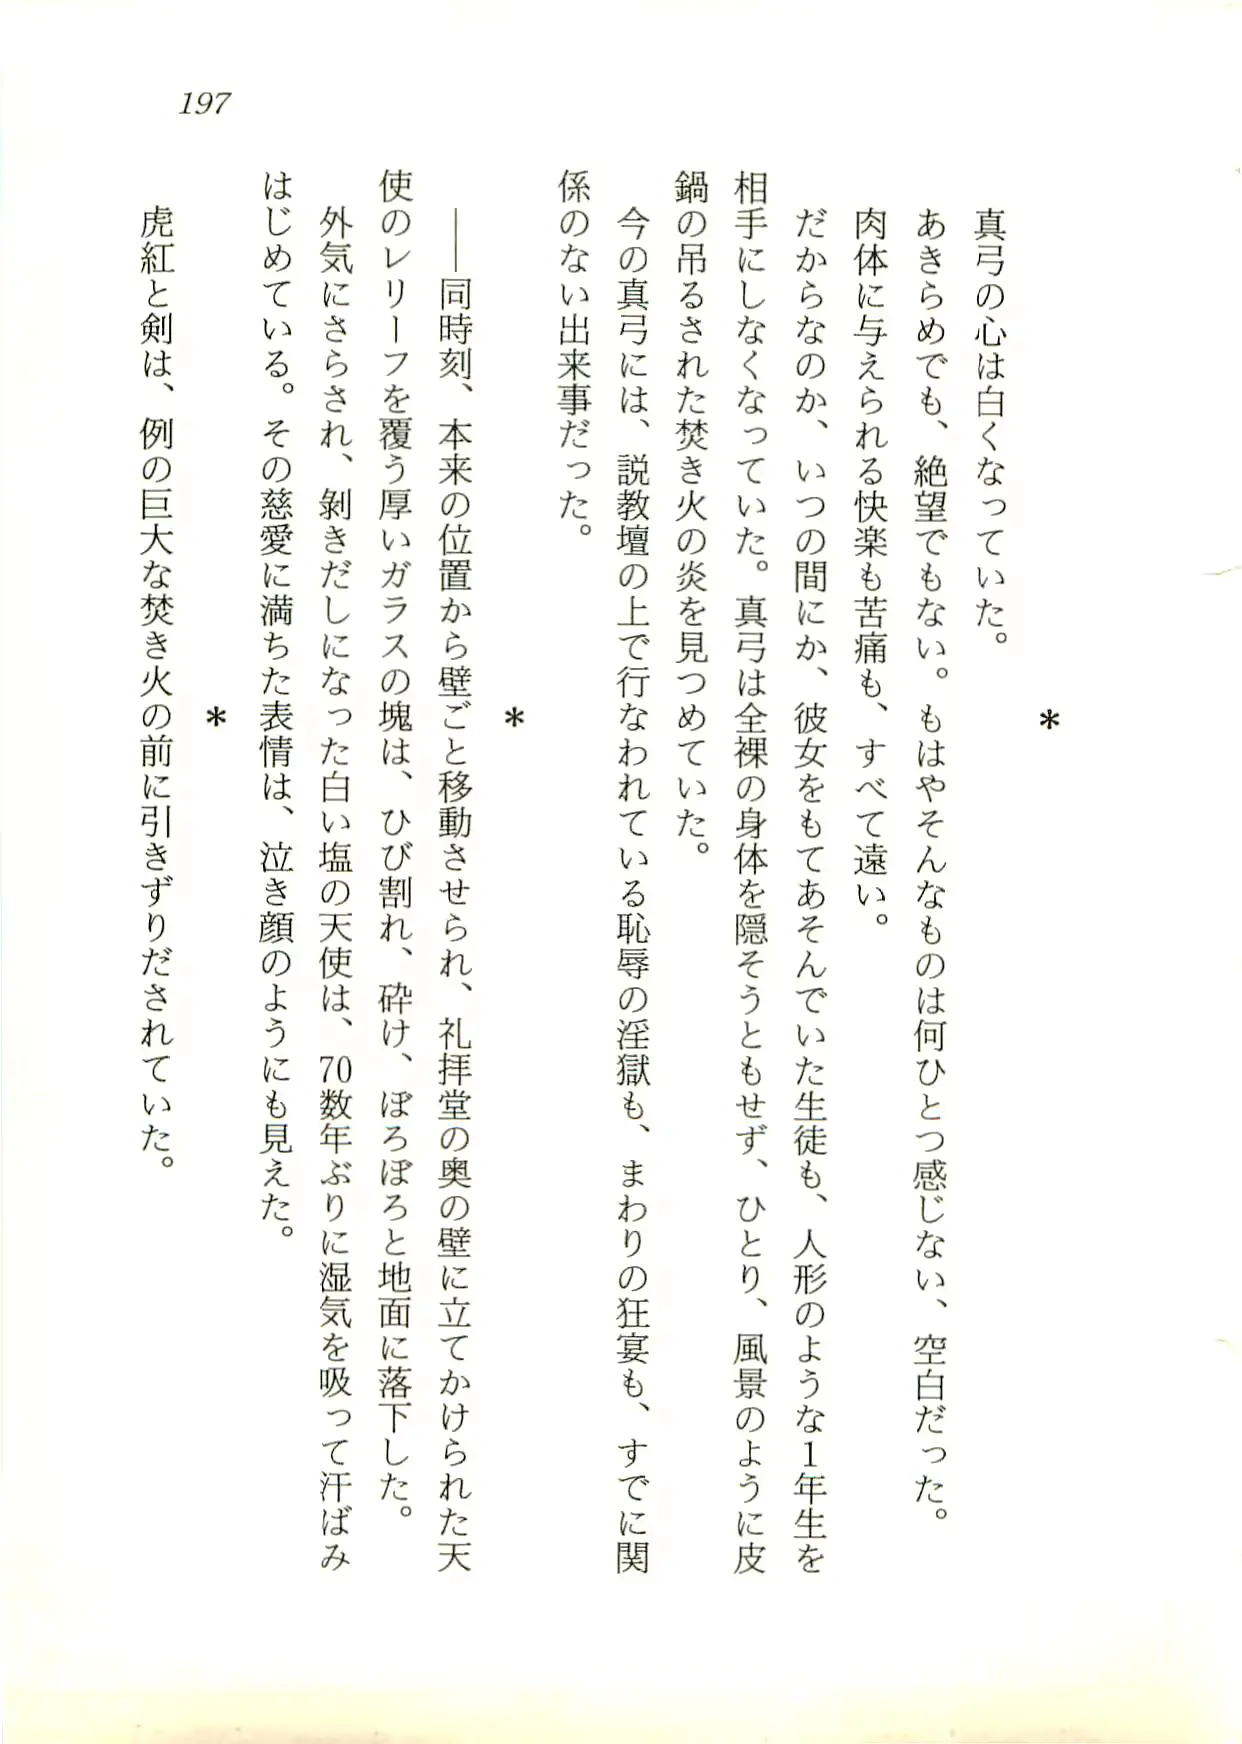 197
＊
真弓の心は白くなっていた。
あきらめでも、絶望でもない。もはやそんなものは何ひとつ感じない、空白だった。
肉体に与えられる快楽も苦痛も、すべて遠い。
だからなのか、いつの間にか、彼女をもてあそんでいた生徒も、人形のような1年生を
相手にしなくなっていた。真弓は全裸の身体を隠そうともせず、ひとり、風景のように皮
鍋の吊るされた焚き火の炎を見つめていた。
今の真弓には、説教壇の上で行なわれている恥辱の淫獄も、まわりの狂宴も、すでに関
係のない出来事だった。
＊
――同時刻、本来の位置から壁ごと移動させられ、礼拝堂の奥の壁に立てかけられた天
使のレリーフを覆う厚いガラスの塊は、ひび割れ、砕け、ぼろぼろと地面に落下した。
外気にさらされ、剝きだしになった白い塩の天使は、70数年ぶりに湿気を吸って汗ばみ
はじめている。その慈愛に満ちた表情は、泣き顔のようにも見えた。
＊
虎紅と剣は、例の巨大な焚き火の前に引きずりだされていた。